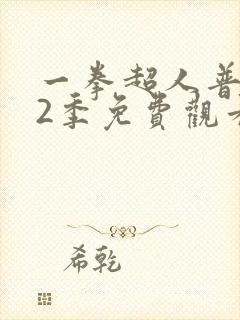 一拳超人普
2季免費觀看
希乾